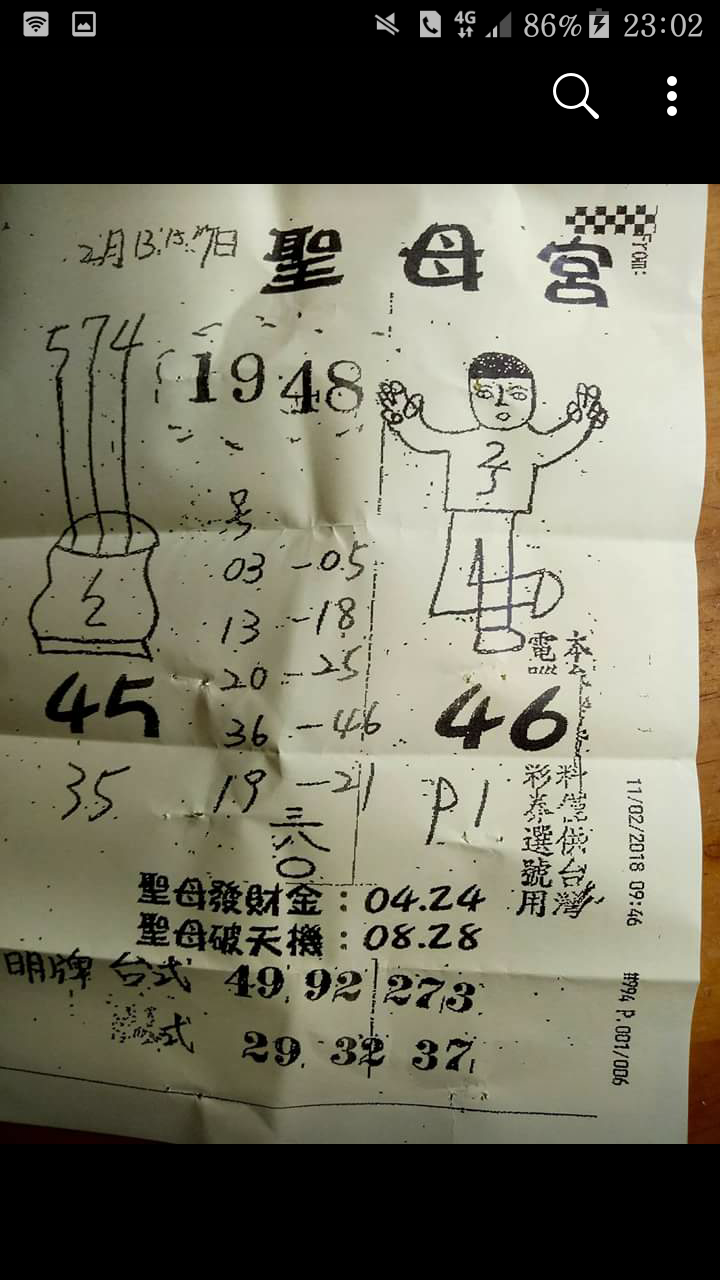 4G 86% 23:02
From:
2月13.15.17日
聖母宮
574
1948
2
5
号
03 -05
13 -18
20 -25
36 -46
19 -21
三八〇
2
45
35
46
P1
本
電
料僅供台灣
彩券選號用
聖母發財金：04.24
聖母破天機：08.28
明牌 台式 49 92 273
式 29 32 37
11/02/2018 09:46
#994 P.001/006